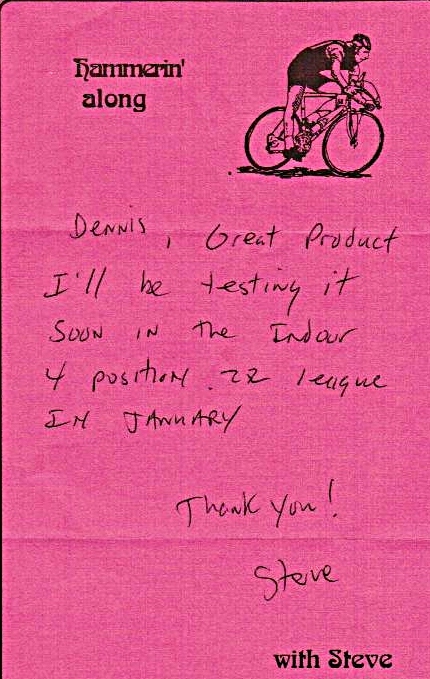 Hammerin'
along
Dennis, Great Product
I'll be testing it
soon in the Indoor
4 position .22 league
IN JANUARY
Thank you!
Steve
with Steve